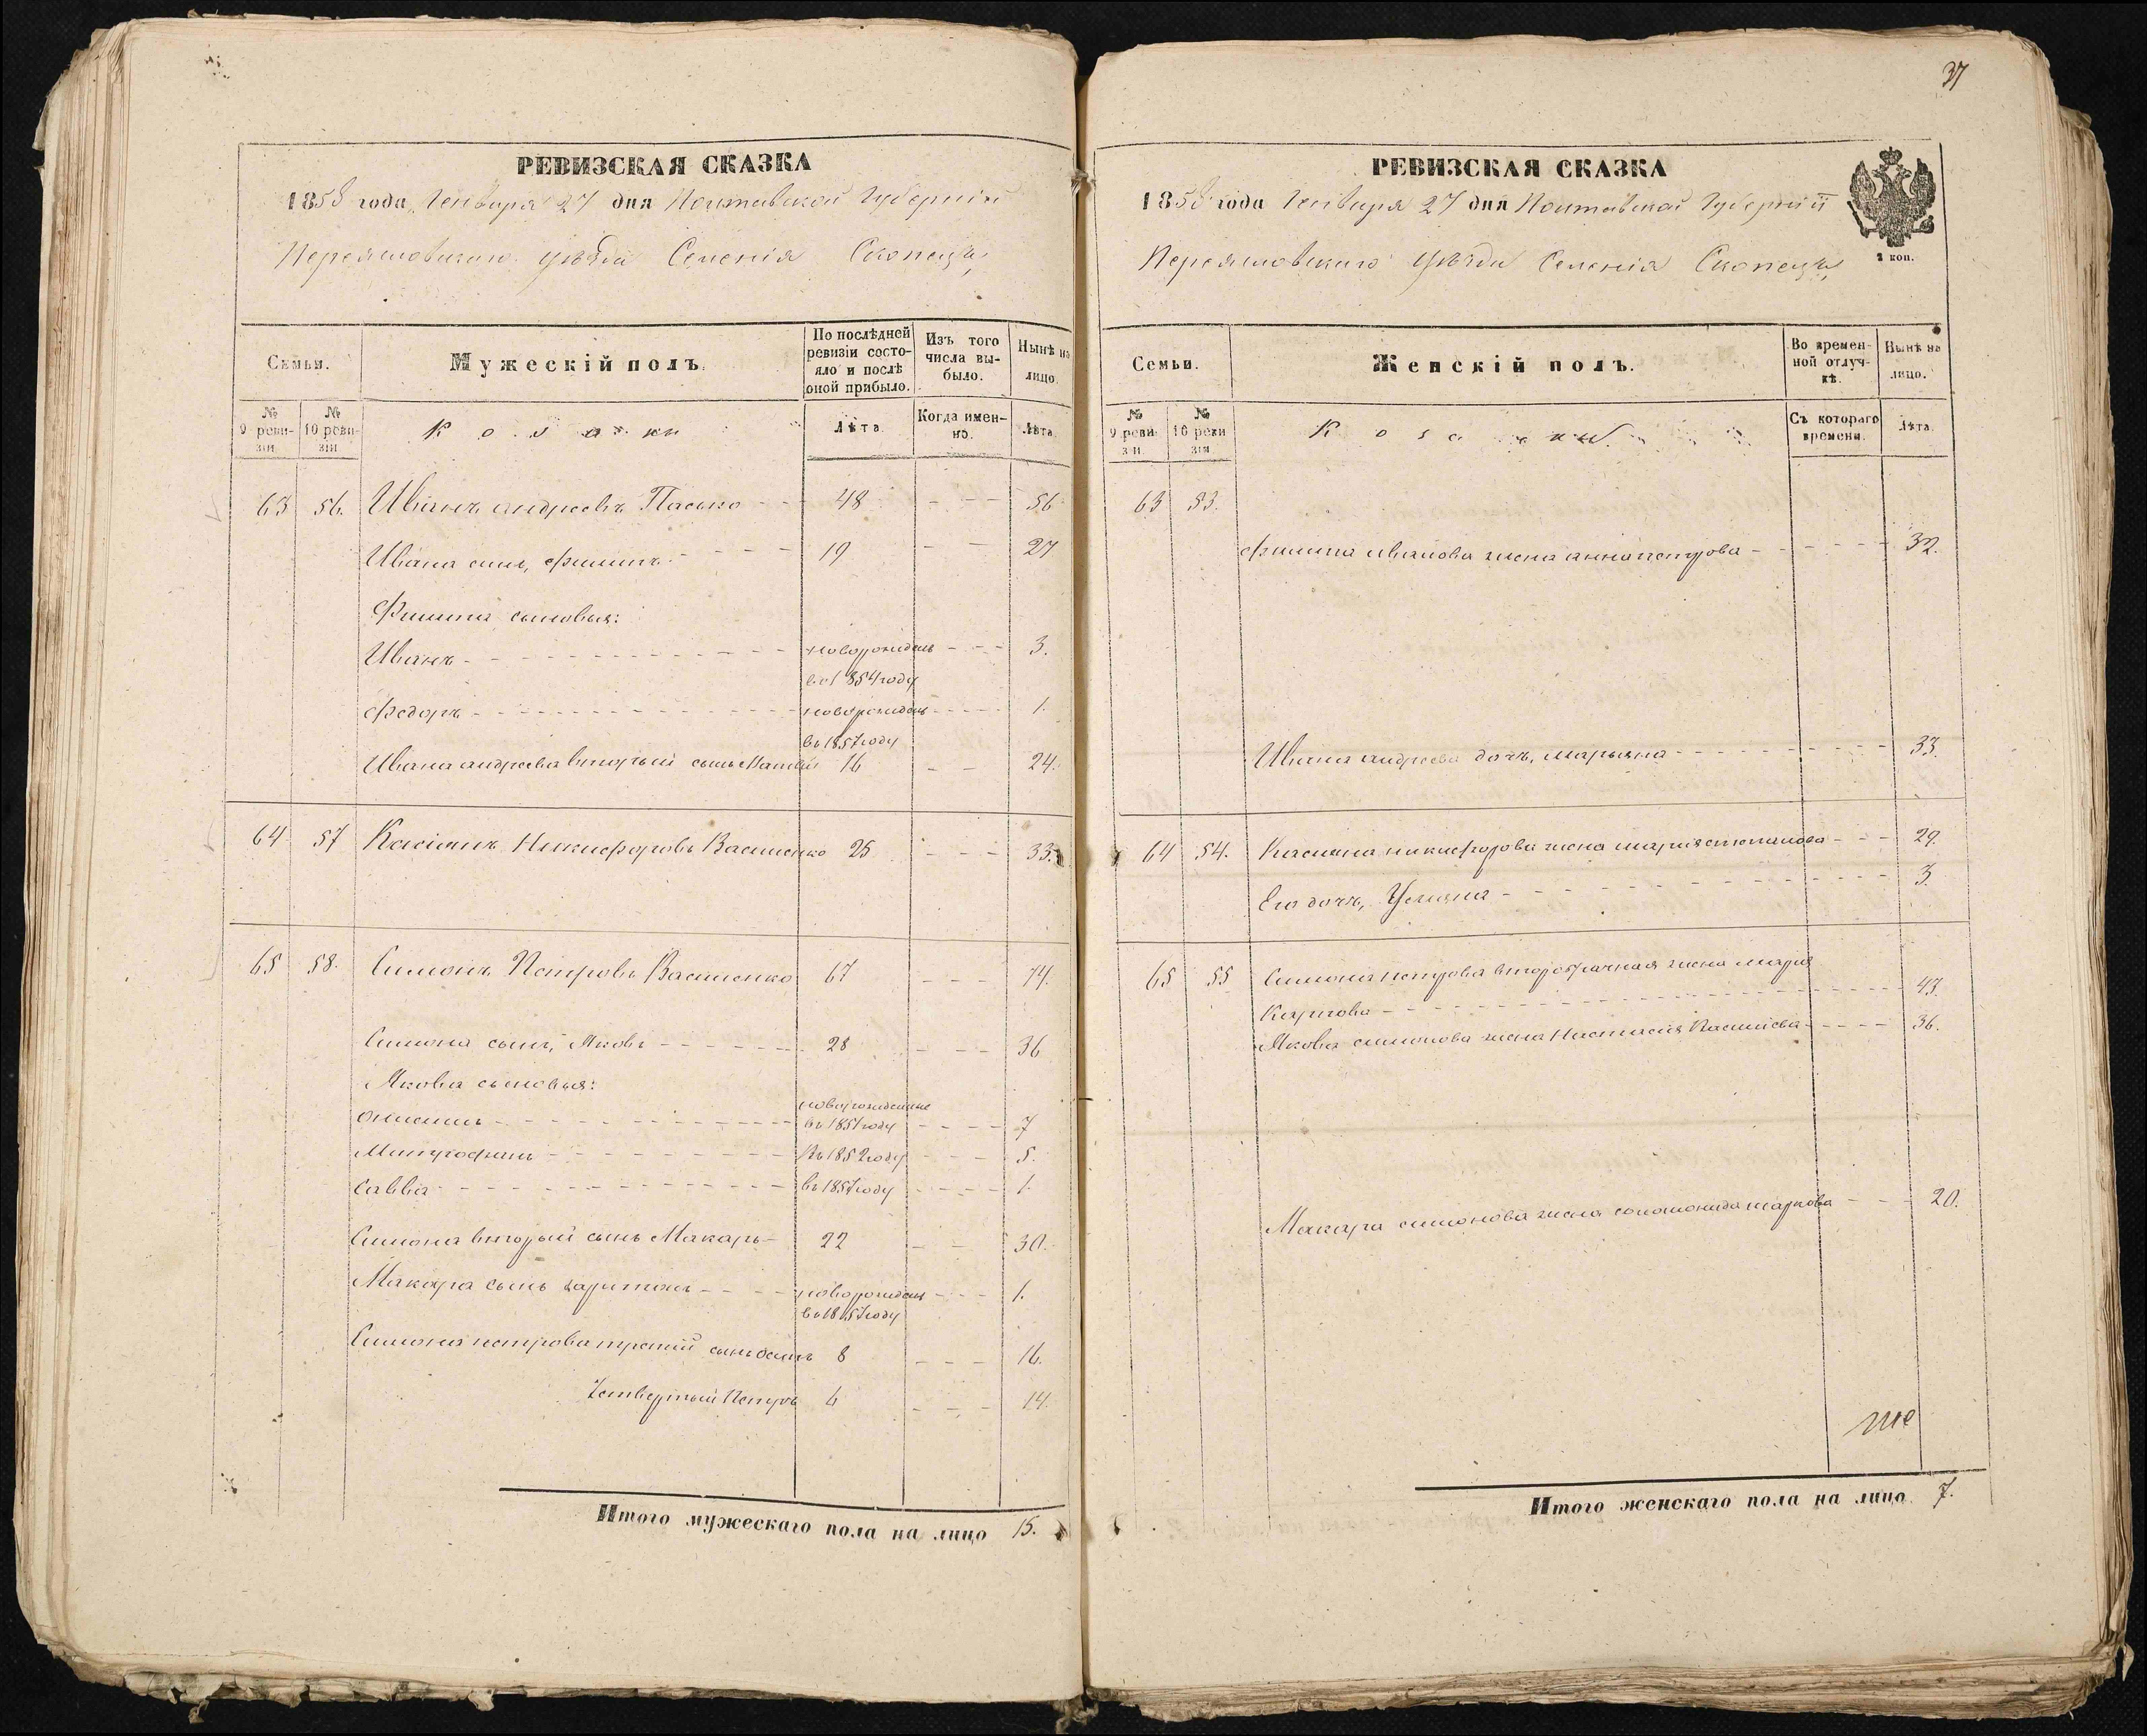 РЕВИЗСКАЯ СКАЗКА
1858 года Генваря 27 дня Полтавской Губерніи
Переяславскаго уѣзда Селенія Скопецъ
Семьи.
Мужескій полъ.
По послѣдней ревизіи состояло и послѣ оной прибыло.
Изъ того числа выбыло.
Нынѣ на лицо.
№ 9 ревизіи
№ 10 ревизіи
Козаки
Лѣта
Когда именно.
Лѣта
63 56. Иванъ андреевъ Пасько 48 56
Ивана сынъ, филипъ 19 27
Филипа сыновья:
Иванъ новорожденъ 3.
во 1854 году
Федоръ новорожденъ 1.
въ 1857 году
Ивана андреева второй сынъ Матвѣй 16 24.
64 57 Касіянъ Никифоровъ Василенко 25 33.
65 58. Симонъ Петровъ Василенко 67 74.
Симона сынъ, Яковъ 28 36
Якова сыновья:
новорожденные
Онисимъ въ 1851 году 7
Митрофанъ въ 1852 году 5.
Савва въ 1857 году 1.
Симона второй сынъ Макаръ 22 30.
Макара сынъ харитонъ новорожденъ 1.
въ 1857 году
Симона петрова третій сынъ осипъ 8 16.
Четвертый Петръ 6 14.
Итого мужескаго пола на лицо 15.
37
РЕВИЗСКАЯ СКАЗКА
1858 года Генваря 27 дня Полтавской Губерніи
Переяславскаго уѣзда Селенія Скопецъ
коп.
Семьи.
Женскій полъ.
Во временной отлучкѣ.
Нынѣ на лицо.
№ 9 ревизіи
№ 10 ревизіи
Съ котораго времени.
Лѣта
63 53.
филипа иванова жена анна петрова 32.
Ивана андреева дочь, марьяна 33.
64 54. Касіяна никифорова жена марія степанова 29.
Его дочь, Ульяна 3.
65 55 Симона петрова второбрачная жена марія
Карпова 43.
Якова симонова жена Настасія Василіева 36.
Макара симонова жена соломонида маркова 20.
Итого женскаго пола на лицо 7.